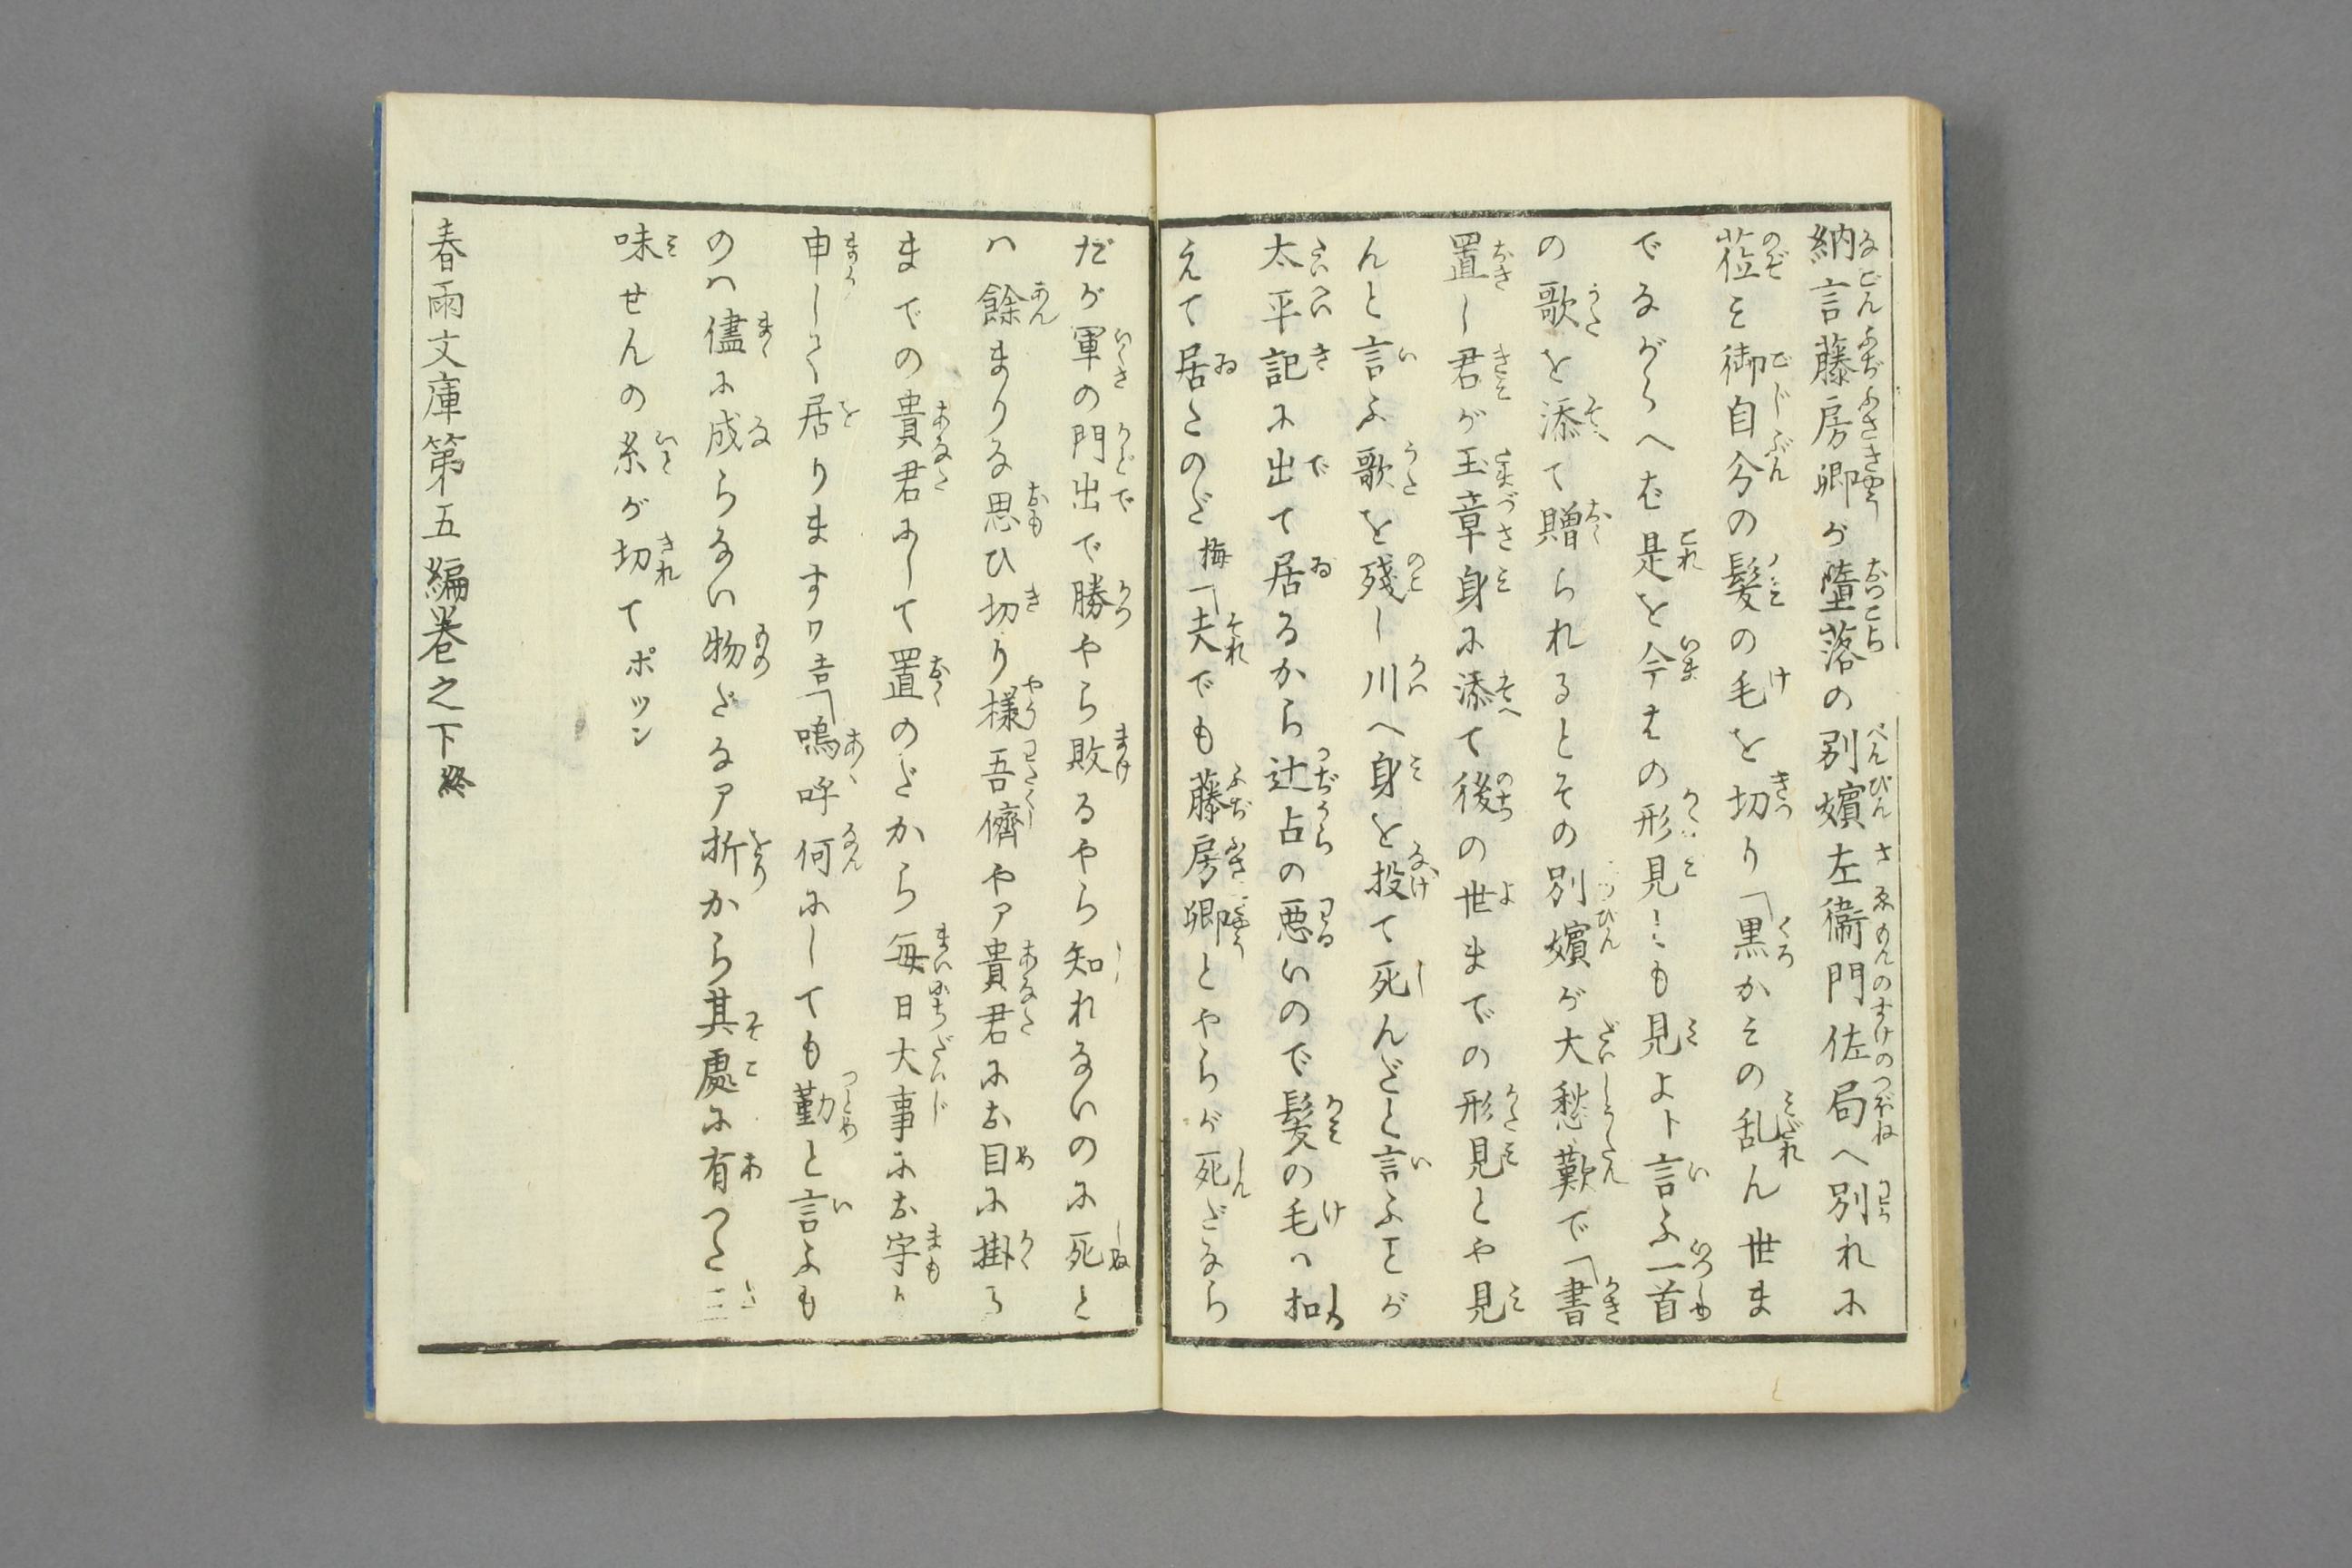 納言藤房卿が墮落の別嬪左衞門佐局へ別れに
莅ミ御自分の髪の毛を切り「黒かミの乱ん世ま
でながらへば是を今はの形見ミも見よト言ふ一首
の歌を添て贈られるとその別嬪が大愁歎で「書
置し君が玉章身に添て後の世までの形見とや見
んと言ふ歌を残し川へ身を投て死んだと言ふとが
太平記に出て居るから辻占の悪いので髪の毛ハ扣
えて居たのだ梅「夫でも藤房卿とやらが死だなら
だが軍の門出で勝やら敗るやら知れないのに死と
ハ餘まりな思ひ切り様吾儕やア貴君にお目に掛ろ
までの貴君にして置のだから毎日大事にお守り
申して居りますワ吉「嗚呼何にしても勤と言ふも
のハ儘に成らない物だなア折から其處に有つた三
味せんの糸が切てポツン
春雨文庫第五編巻之下終